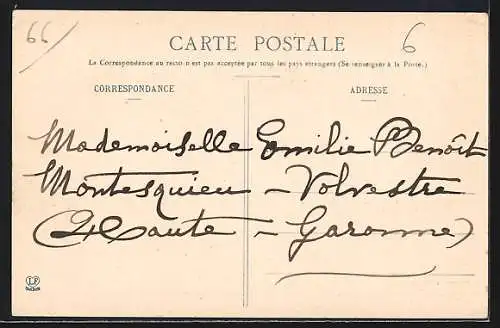 66/
6
CARTE POSTALE
La Correspondance au recto n'est pas acceptée par tous les pays étrangers (Se renseigner à la Poste.)
CORRESPONDANCE
ADRESSE
Mademoiselle Emilie Benoît
Montesquieu - Volvestre
(Haute - Garonne)
LF